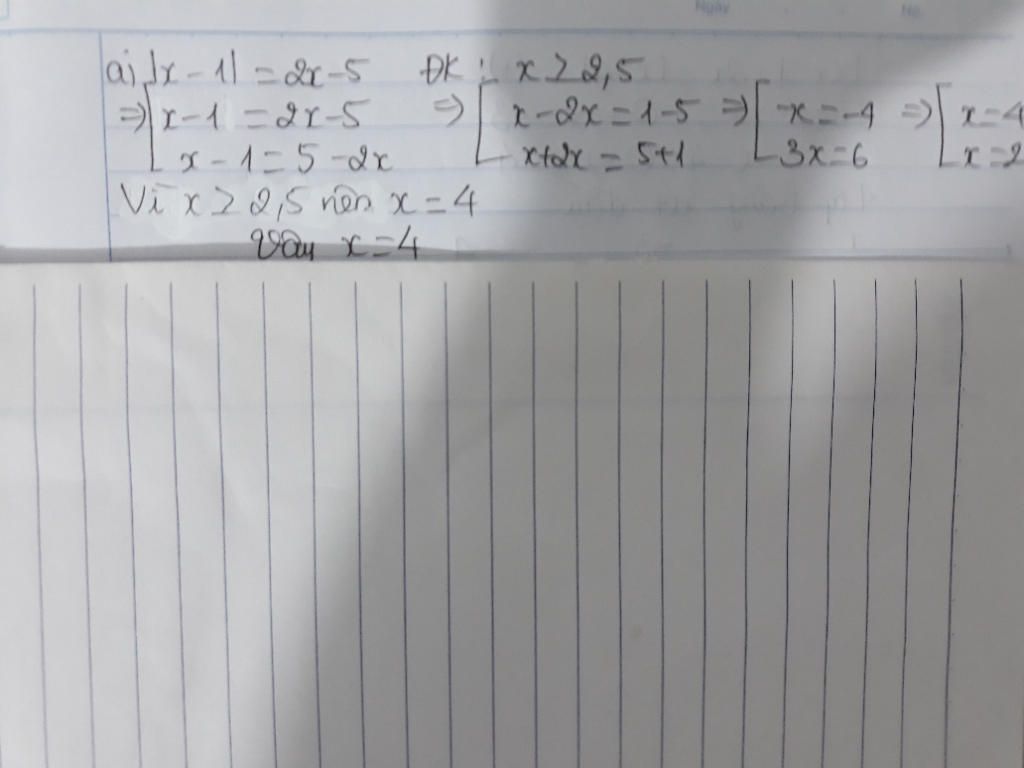 Ngày No.
a) |x - 1| = 2x - 5 ĐK: x ≥ 2,5
⇒ [x - 1 = 2x - 5 ⇒ [x - 2x = 1 - 5 ⇒ [-x = -4 ⇒ [x = 4
x - 1 = 5 - 2x x + 2x = 5 + 1 3x = 6 x = 2
Vì x ≥ 2,5 nên x = 4
Vậy x = 4